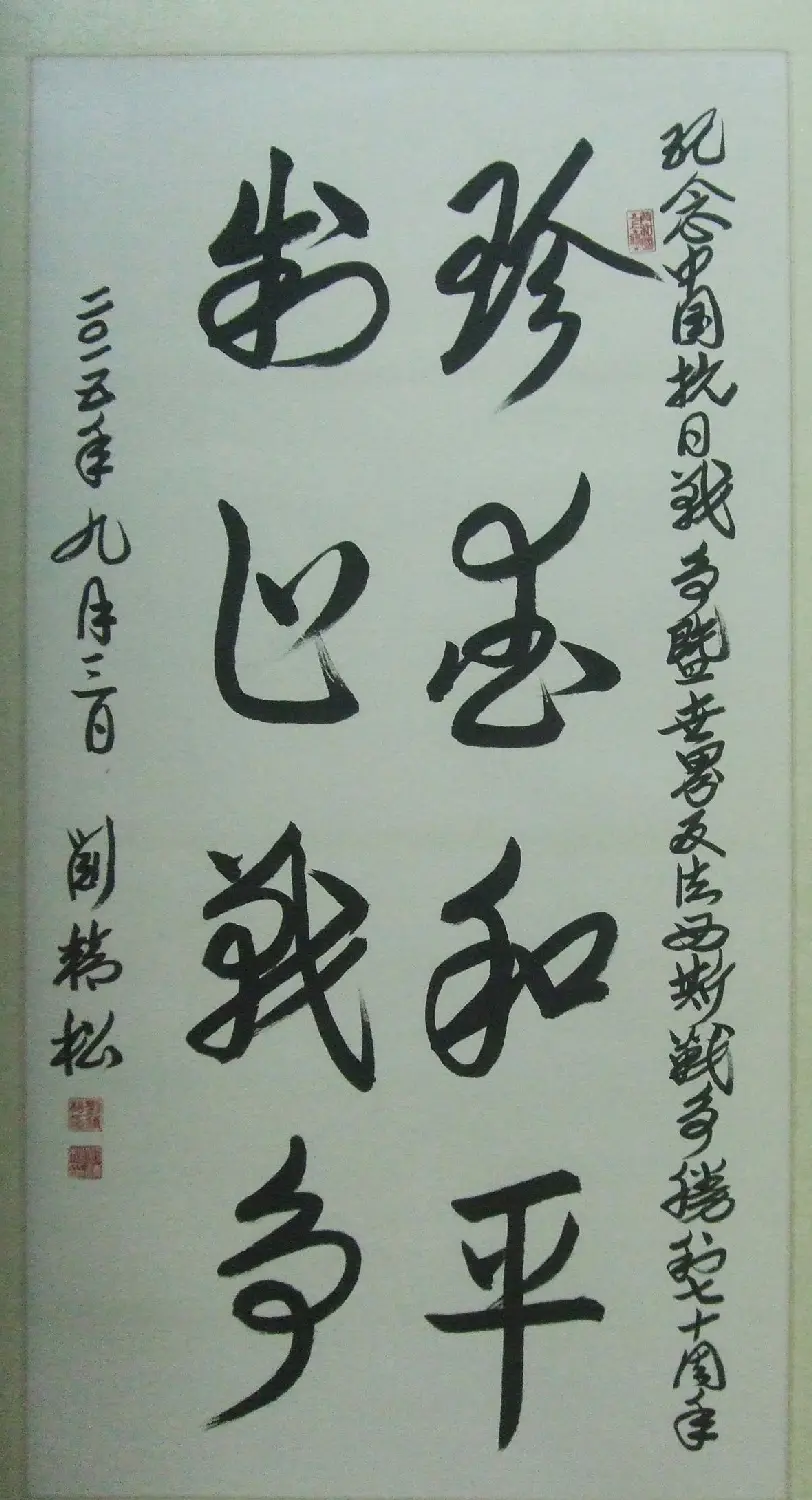 纪念中国抗日戰争暨世界反法西斯戰争勝利七十周年
珍爱和平
制止戰争
二〇一五年九月三日 劉精松